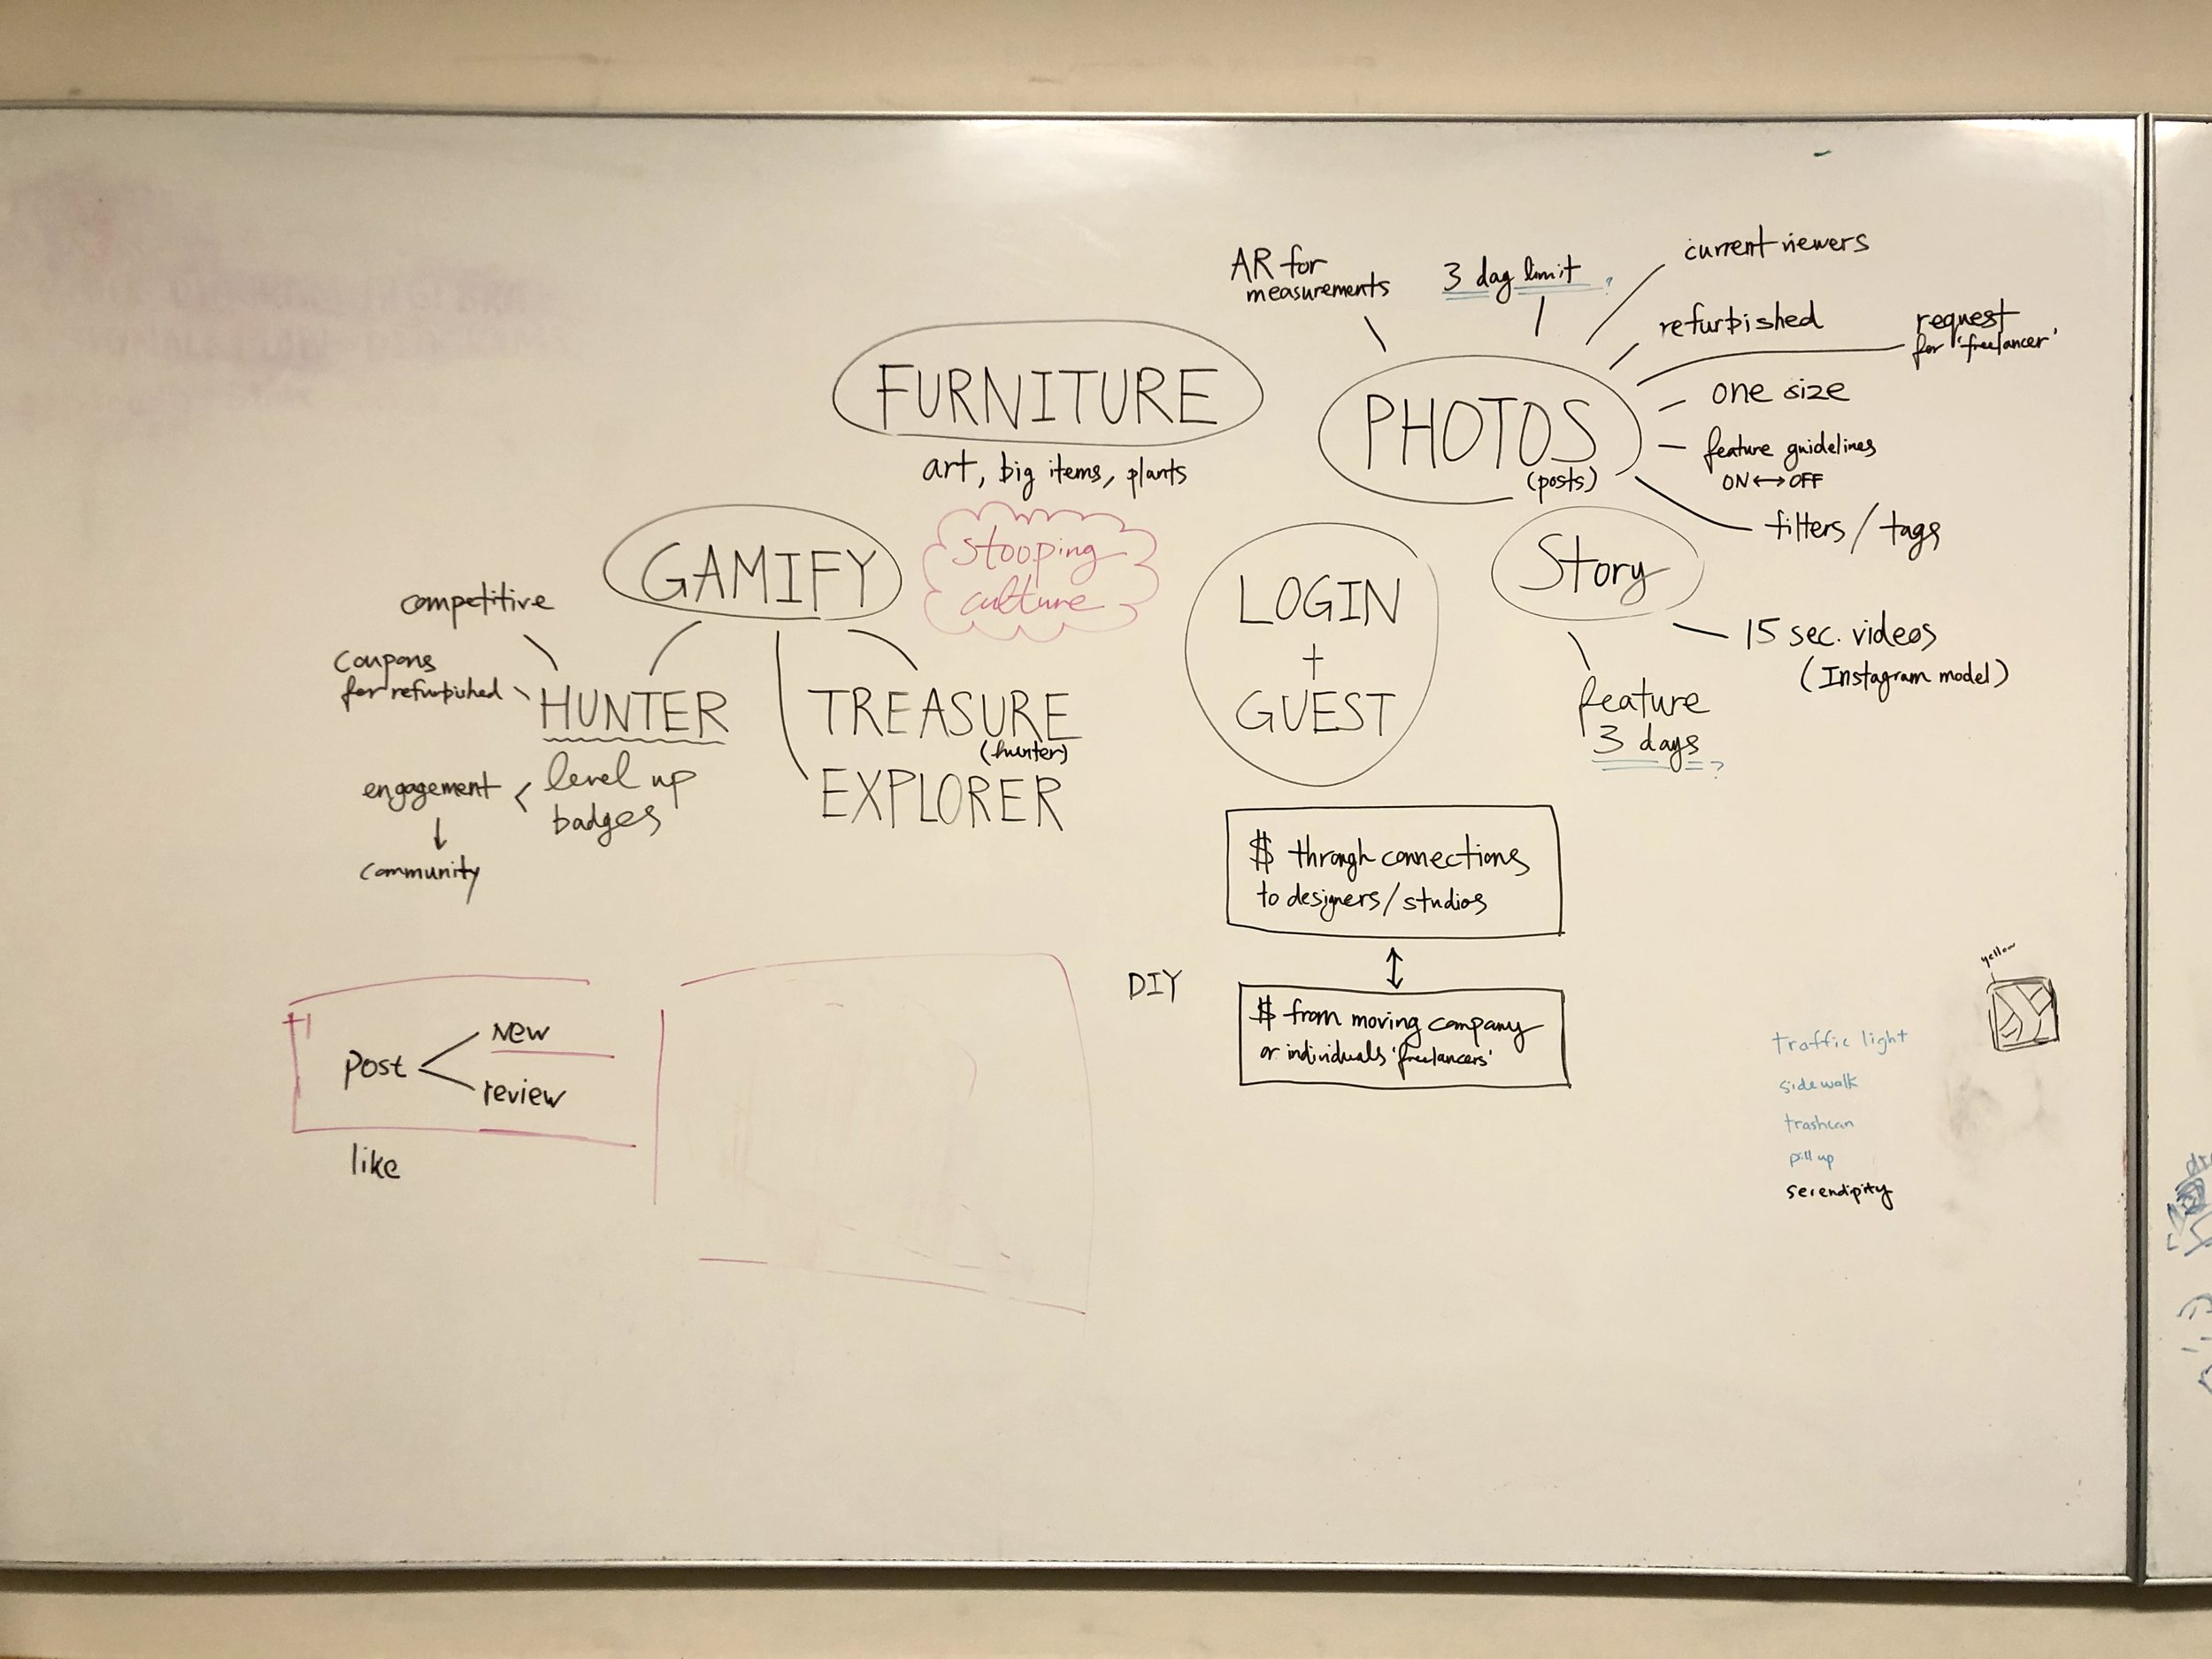 FURNITURE
art, big items, plants
stooping
culture
GAMIFY
competitive
coupons
for refurbished
HUNTER
level up
badges
engagement
community
TREASURE
(hunter)
EXPLORER
AR for
measurements
3 day limit ?
current viewers
refurbished
request
for 'freelancer'
one size
feature guidelines
ON ↔ OFF
filters / tags
PHOTOS
(posts)
Story
15 sec. videos
(Instagram model)
feature
3 days ?
LOGIN
+
GUEST
$ through connections
to designers/studios
DIY
$ from moving company
or individuals 'freelancers'
post
new
review
like
yellow
traffic light
sidewalk
trashcan
serendipity